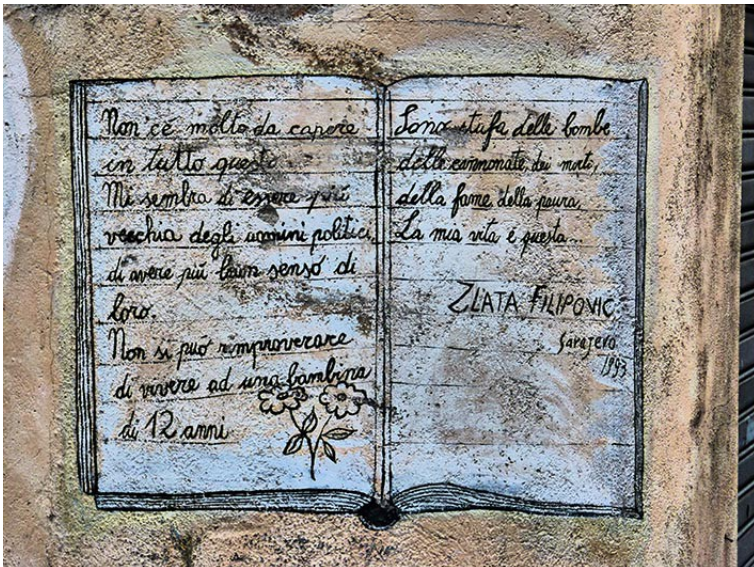 Non c'é molto da capire
in tutto questo.
Mi sembra di essere piú
vecchia degli uomini politici,
di avere piú buon senso di
loro.
Non si può rimproverare
di vivere ad una bambina
di 12 anni
Sono stufa delle bombe
delle cannonate, dei morti,
della fame, della paura.
La mia vita é questa...
ZLATA FILIPOVIC
Sarajevo
1993